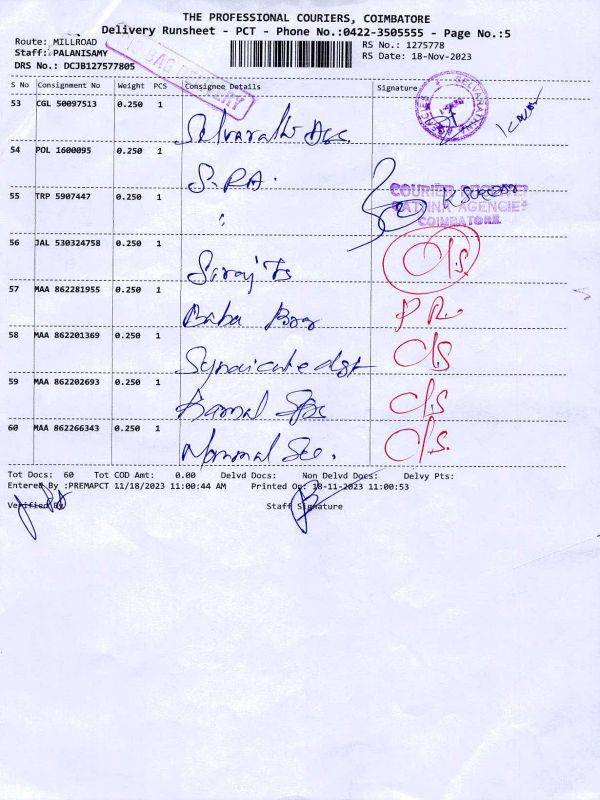 THE PROFESSIONAL COURIERS, COIMBATORE
Delivery Runsheet - PCT - Phone No.:0422-3505555 - Page No.:5
Route: MILLROAD
RS No.: 1275778
Staff: PALANISAMY
RS Date: 18-Nov-2023
DRS No.: DCJB127577805
S No Consignment No Weight PCS Consignee Details Signature
53 CGL 50097513 0.250 1
54 POL 1600095 0.250 1
S.P.A.
55 TRP 5907447 0.250 1
COURIER
AGENCIES
COIMBATORE
56 JAL 530324758 0.250 1
C/S
57 MAA 862281955 0.250 1
Baba
PR
58 MAA 862201369 0.250 1
Syndicate C/S
59 MAA 862202693 0.250 1
C/S
60 MAA 862266343 0.250 1
C/S.
Tot Docs: 60 Tot COD Amt: 0.00 Delvd Docs: Non Delvd Docs: Delvy Pts:
Entered By :PREMAPCT 11/18/2023 11:00:44 AM Printed On: 18-11-2023 11:00:53
Verified By Staff Signature